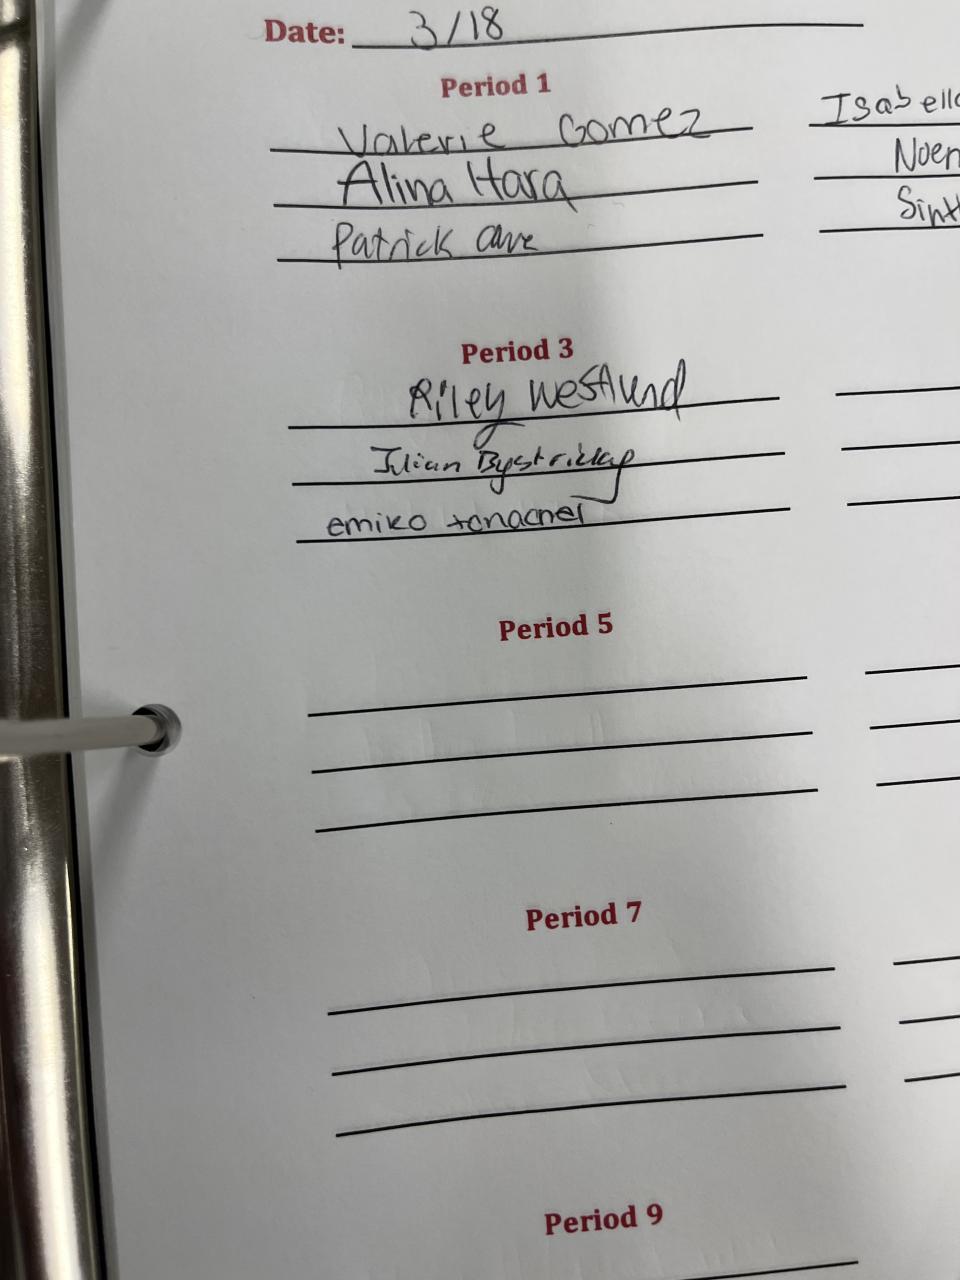 Date: 3/18
Period 1
Valerie Gomez
Isabella
Alina Hara
Noen
Patrick
Sint
Period 3
Riley Westlund
Julian Bystricky
emiko
Period 5
Period 7
Period 9